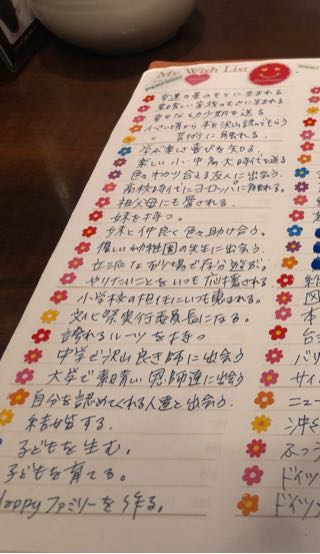 My Wish List
幸運の星のもとに生まれる
素晴らしい家族のもとに生まれる.
幸せな幼少期を送る
小さい頃から本を沢山読んでもらう
芸術に触れる.
学ぶ楽しさ喜びを知る.
楽しい小・中・高・大時代を送る
色々わかり合える友人に出会う.
高校時代にヨーロッパに触れる.
祖父母にも愛される.
妹を持つ.
妹と仲良く色々助け合う.
優しい幼稚園の先生に出会う.
やりたいことをいつも応援される
小学校の担任にいつも恵まれる.
文化祭実行委員長になる.
誇れるルーツを持つ
中学で沢山良き師に出会う
大学で素晴らしい恩師達に出会う
自分を認めてくれる人達と出会う.
結婚する.
子どもを生む.
子どもを育てる.
Happyファミリーを作る.
本
バリ
サイ
ニュー
沖縄
ふつう
ドイツ
ドイツ